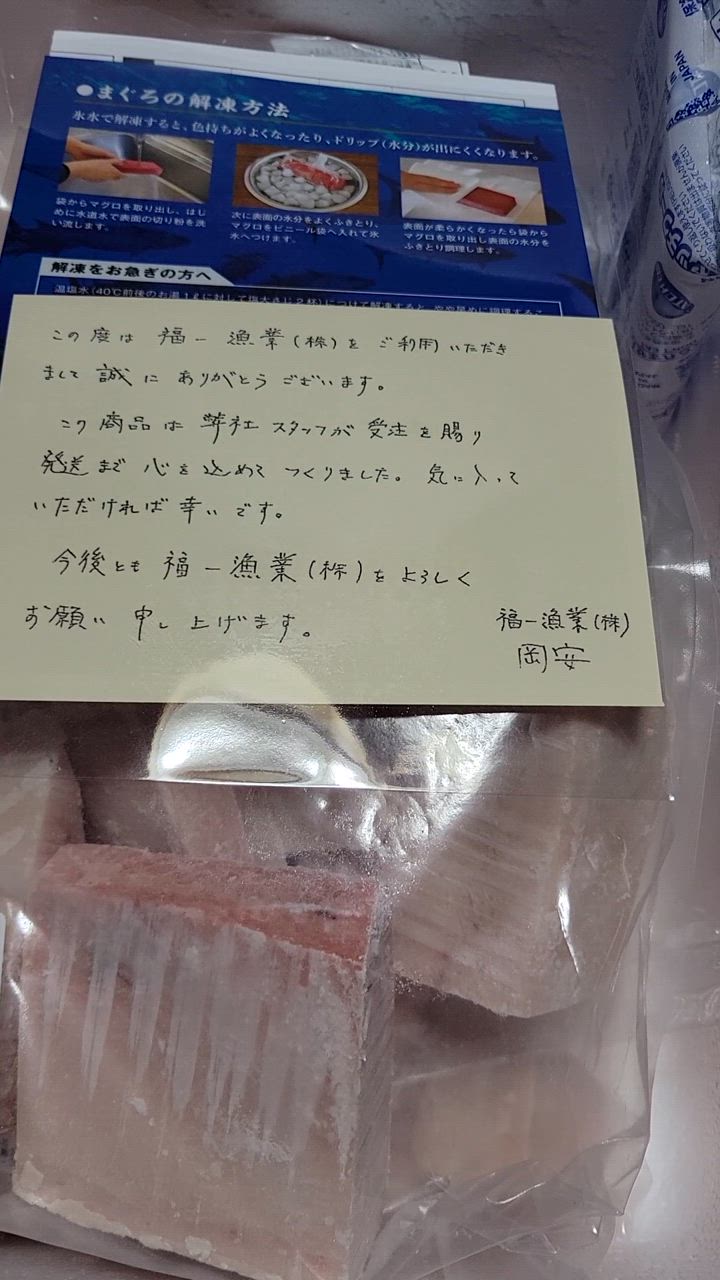 ●まぐろの解凍方法
氷水で解凍すると、色持ちがよくなったり、ドリップ(水分)が出にくくなります。
袋からマグロを取り出し、はじ
めに水道水で表面の切り粉を洗
い流します。
次に表面の水分をよくふきとり、
マグロをビニール袋へ入れて氷
水へつけます。
表面が柔らかくなったら袋から
マグロを取り出し表面の水分を
ふきとり調理します。
解凍をお急ぎの方へ
温塩水(40℃前後のお湯1ℓに対して塩大さじ2杯)につけて解凍すると、
この度は 福一漁業(株)を ご利用いただき
まして 誠に ありがとうございます。
この商品は 弊社スタッフが 受注を賜り
発送まで 心を込めて つくりました。気に入って
いただければ幸いです。
今後とも 福一漁業(株)を よろしく
お願い 申し上げます。
福一漁業(株)
岡安
JAPAN